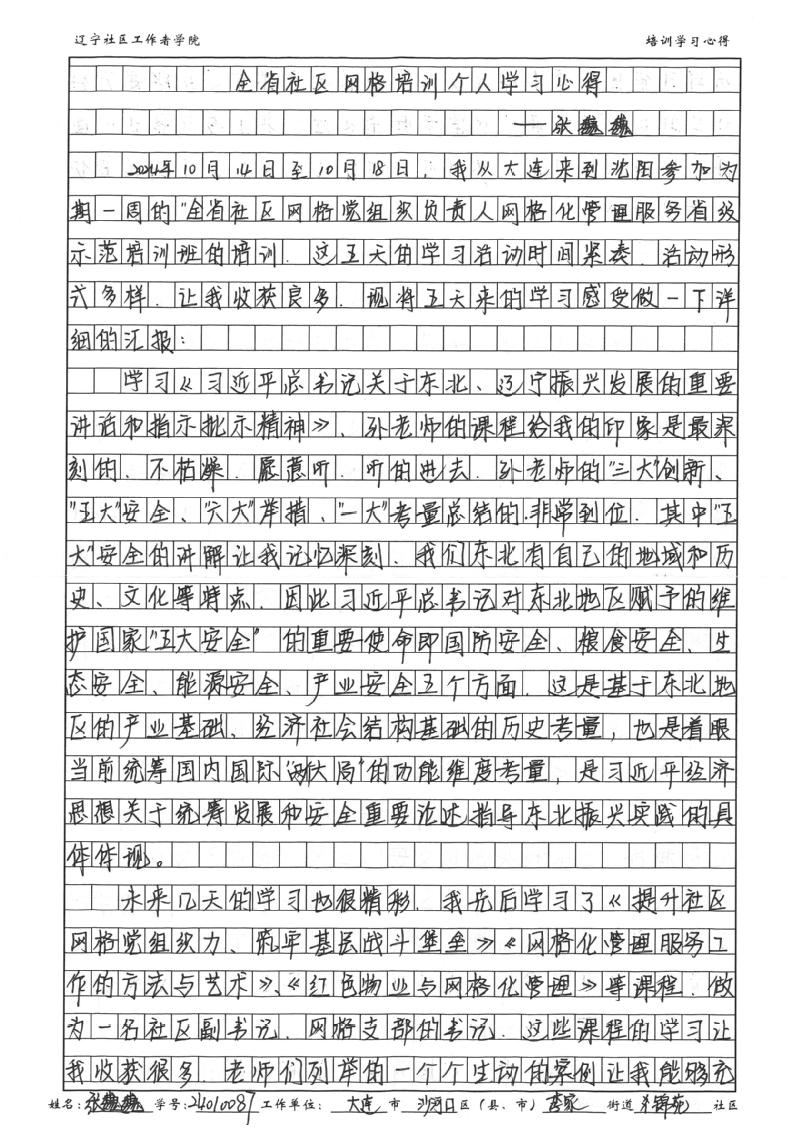 辽宁社区工作者学院 培训学习心得
全省社区网格培训个人学习心得
——张巍巍
2024年10月14日至10月18日，我从大连来到沈阳参加为
期一周的"全省社区网格党组织负责人网格化管理服务省级
示范培训班的培训.这五天的学习活动时间紧凑.活动形
式多样.让我收获良多.现将五天来的学习感受做一下详
细的汇报：
学习《习近平总书记关于东北、辽宁振兴发展的重要
讲话和指示批示精神》、孙老师的课程给我的印象是最深
刻的、不枯燥.愿意听.听的进去.孙老师的"三大"创新、
"五大"安全、"六大"举措、"一大"考量总结的.非常到位.其中"五
大"安全的讲解让我记忆深刻.我们东北有自己的地域和历
史、文化等特点.因此习近平总书记对东北地区赋予的维
护国家"五大安全"的重要使命即国防安全、粮食安全、生
态安全、能源安全、产业安全五个方面.这是基于东北地
区的产业基础、经济社会结构基础的历史考量，也是着眼
当前统筹国内国际"两大局"的功能维度考量，是习近平经济
思想关于统筹发展和安全重要论述指导东北振兴实践的具
体体现。
未来几天的学习也很精彩.我先后学习了《提升社区
网格党组织力、筑牢基层战斗堡垒》《网格化管理服务工
作的方法与艺术》、《红色物业与网格化管理》等课程.做
为一名社区副书记.网格支部的书记.这些课程的学习让
我收获很多.老师们列举的一个个生动的案例让我能够充
姓名：张巍巍 学号：24010087 工作单位： 大连 市 沙河口区（县、市）李家 街道 锦苑 社区